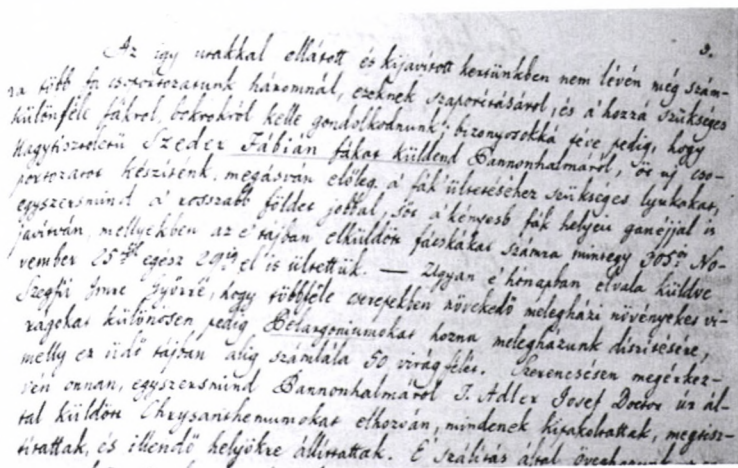 3.
Az igy utakkal ellátott és kijavított kertünkben nem lévén még szám-
ra több fa csoportozatunk háromnál, ezeknek szaporitásáról, és á hozzá szükséges
különféle fákrol, bokrokról kelle gondolkodnunk; bizonyosokká téve pedig, hogy
Nagytiszteletü Szeder Fábián fákat küldend Pannonhalmáról, öt uj cso-
portozatot késziténk, megásván előleg á fák ültetéséhez szükséges lyukakat,
egyszersmind á rosszabb földet jobbal, sőt á kényesb fák helyeit ganéjjal is
javitván, mellyekben az e' tájban elküldött fácskákat számra mintegy 305öt No-
vember 25től egész 29ig el is ültettük. — Ugyan e' hónapban elvala küldve
Szegfü Imre Győrré, hogy többféle cserepekben növekedő melegházi növényeket vi-
rágokat különösen pedig Pelargoniumokat hozna melegházunk diszitésére,
melly ez idő tájban alig számlála 50 virág félét. Szerencsésen megérkez-
vén onnan, egyszersmind Pannonhalmáról T. Adler Josef Doctor úr ál-
tal küldött Chrysanthemumokat elhozván, mindenek kipakoltattak, megtisz-
títattak, és illendő helyökre állíttattak. E' szálitás által